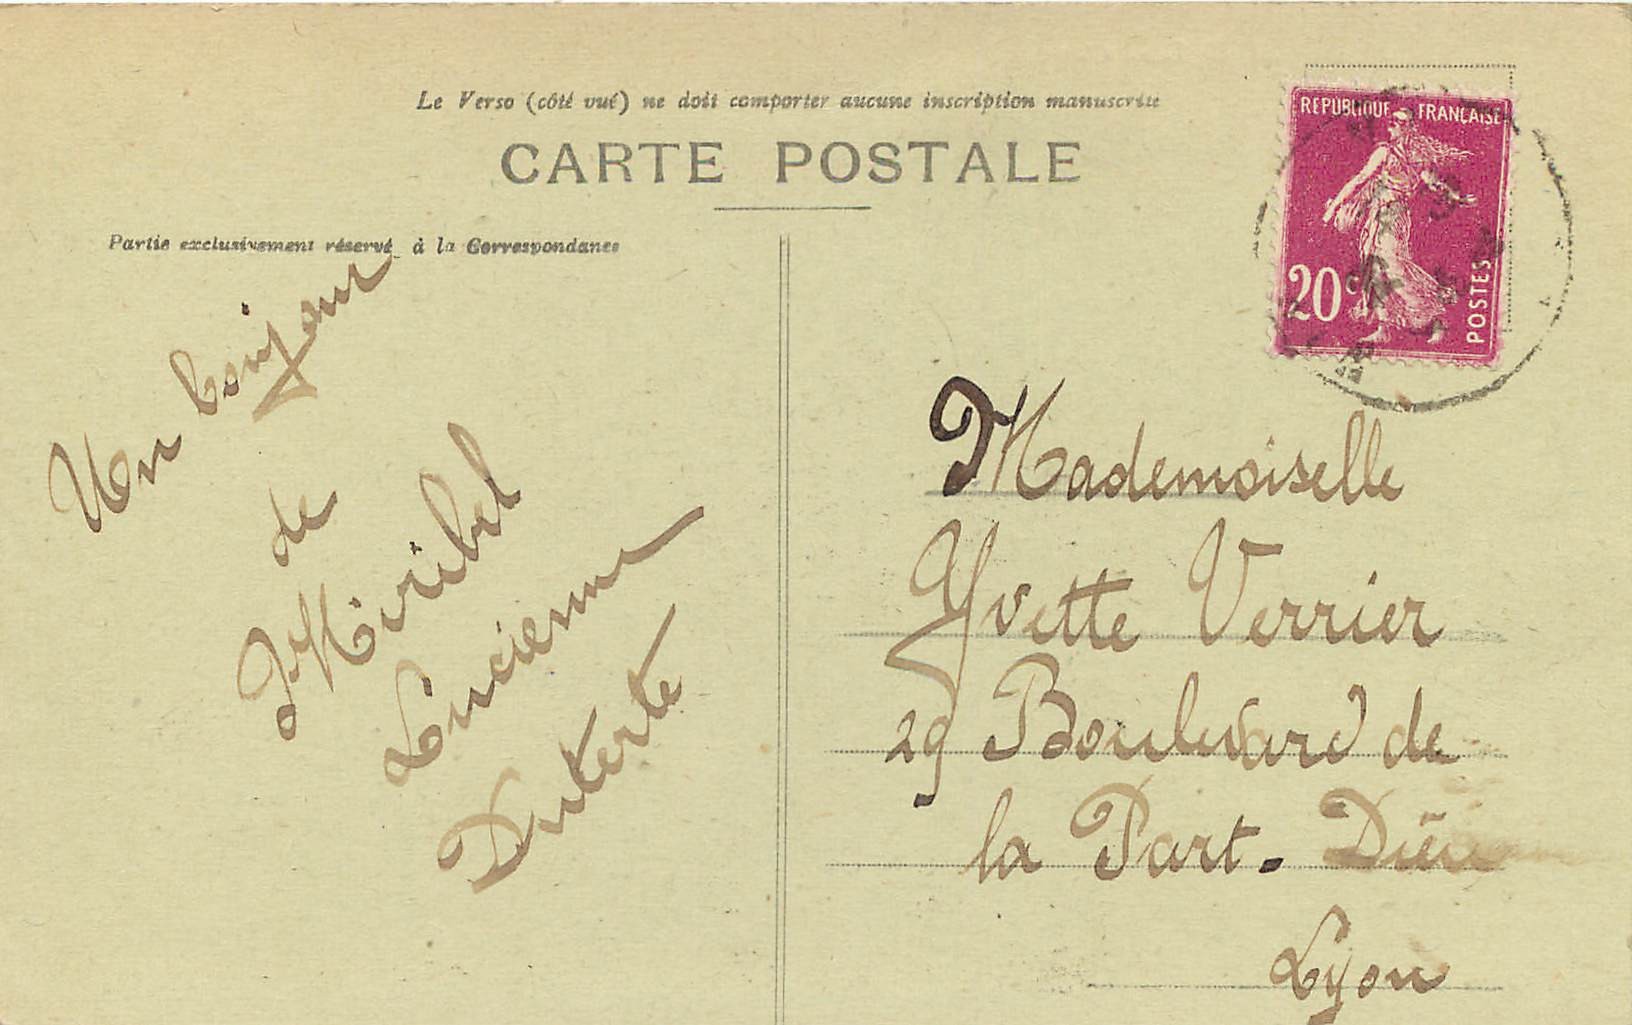 Le Verso (côté vue) ne doit comporter aucune inscription manuscrite
CARTE POSTALE
Partie exclusivement réservé à la Correspondance
REPUBLIQUE FRANÇAISE
20 c
POSTES
Un bonjour
de
Miribel
Lucienne
Duterte
Mademoiselle
Yvette Verrier
29 Boulevard de
la Part. Dieu
Lyon